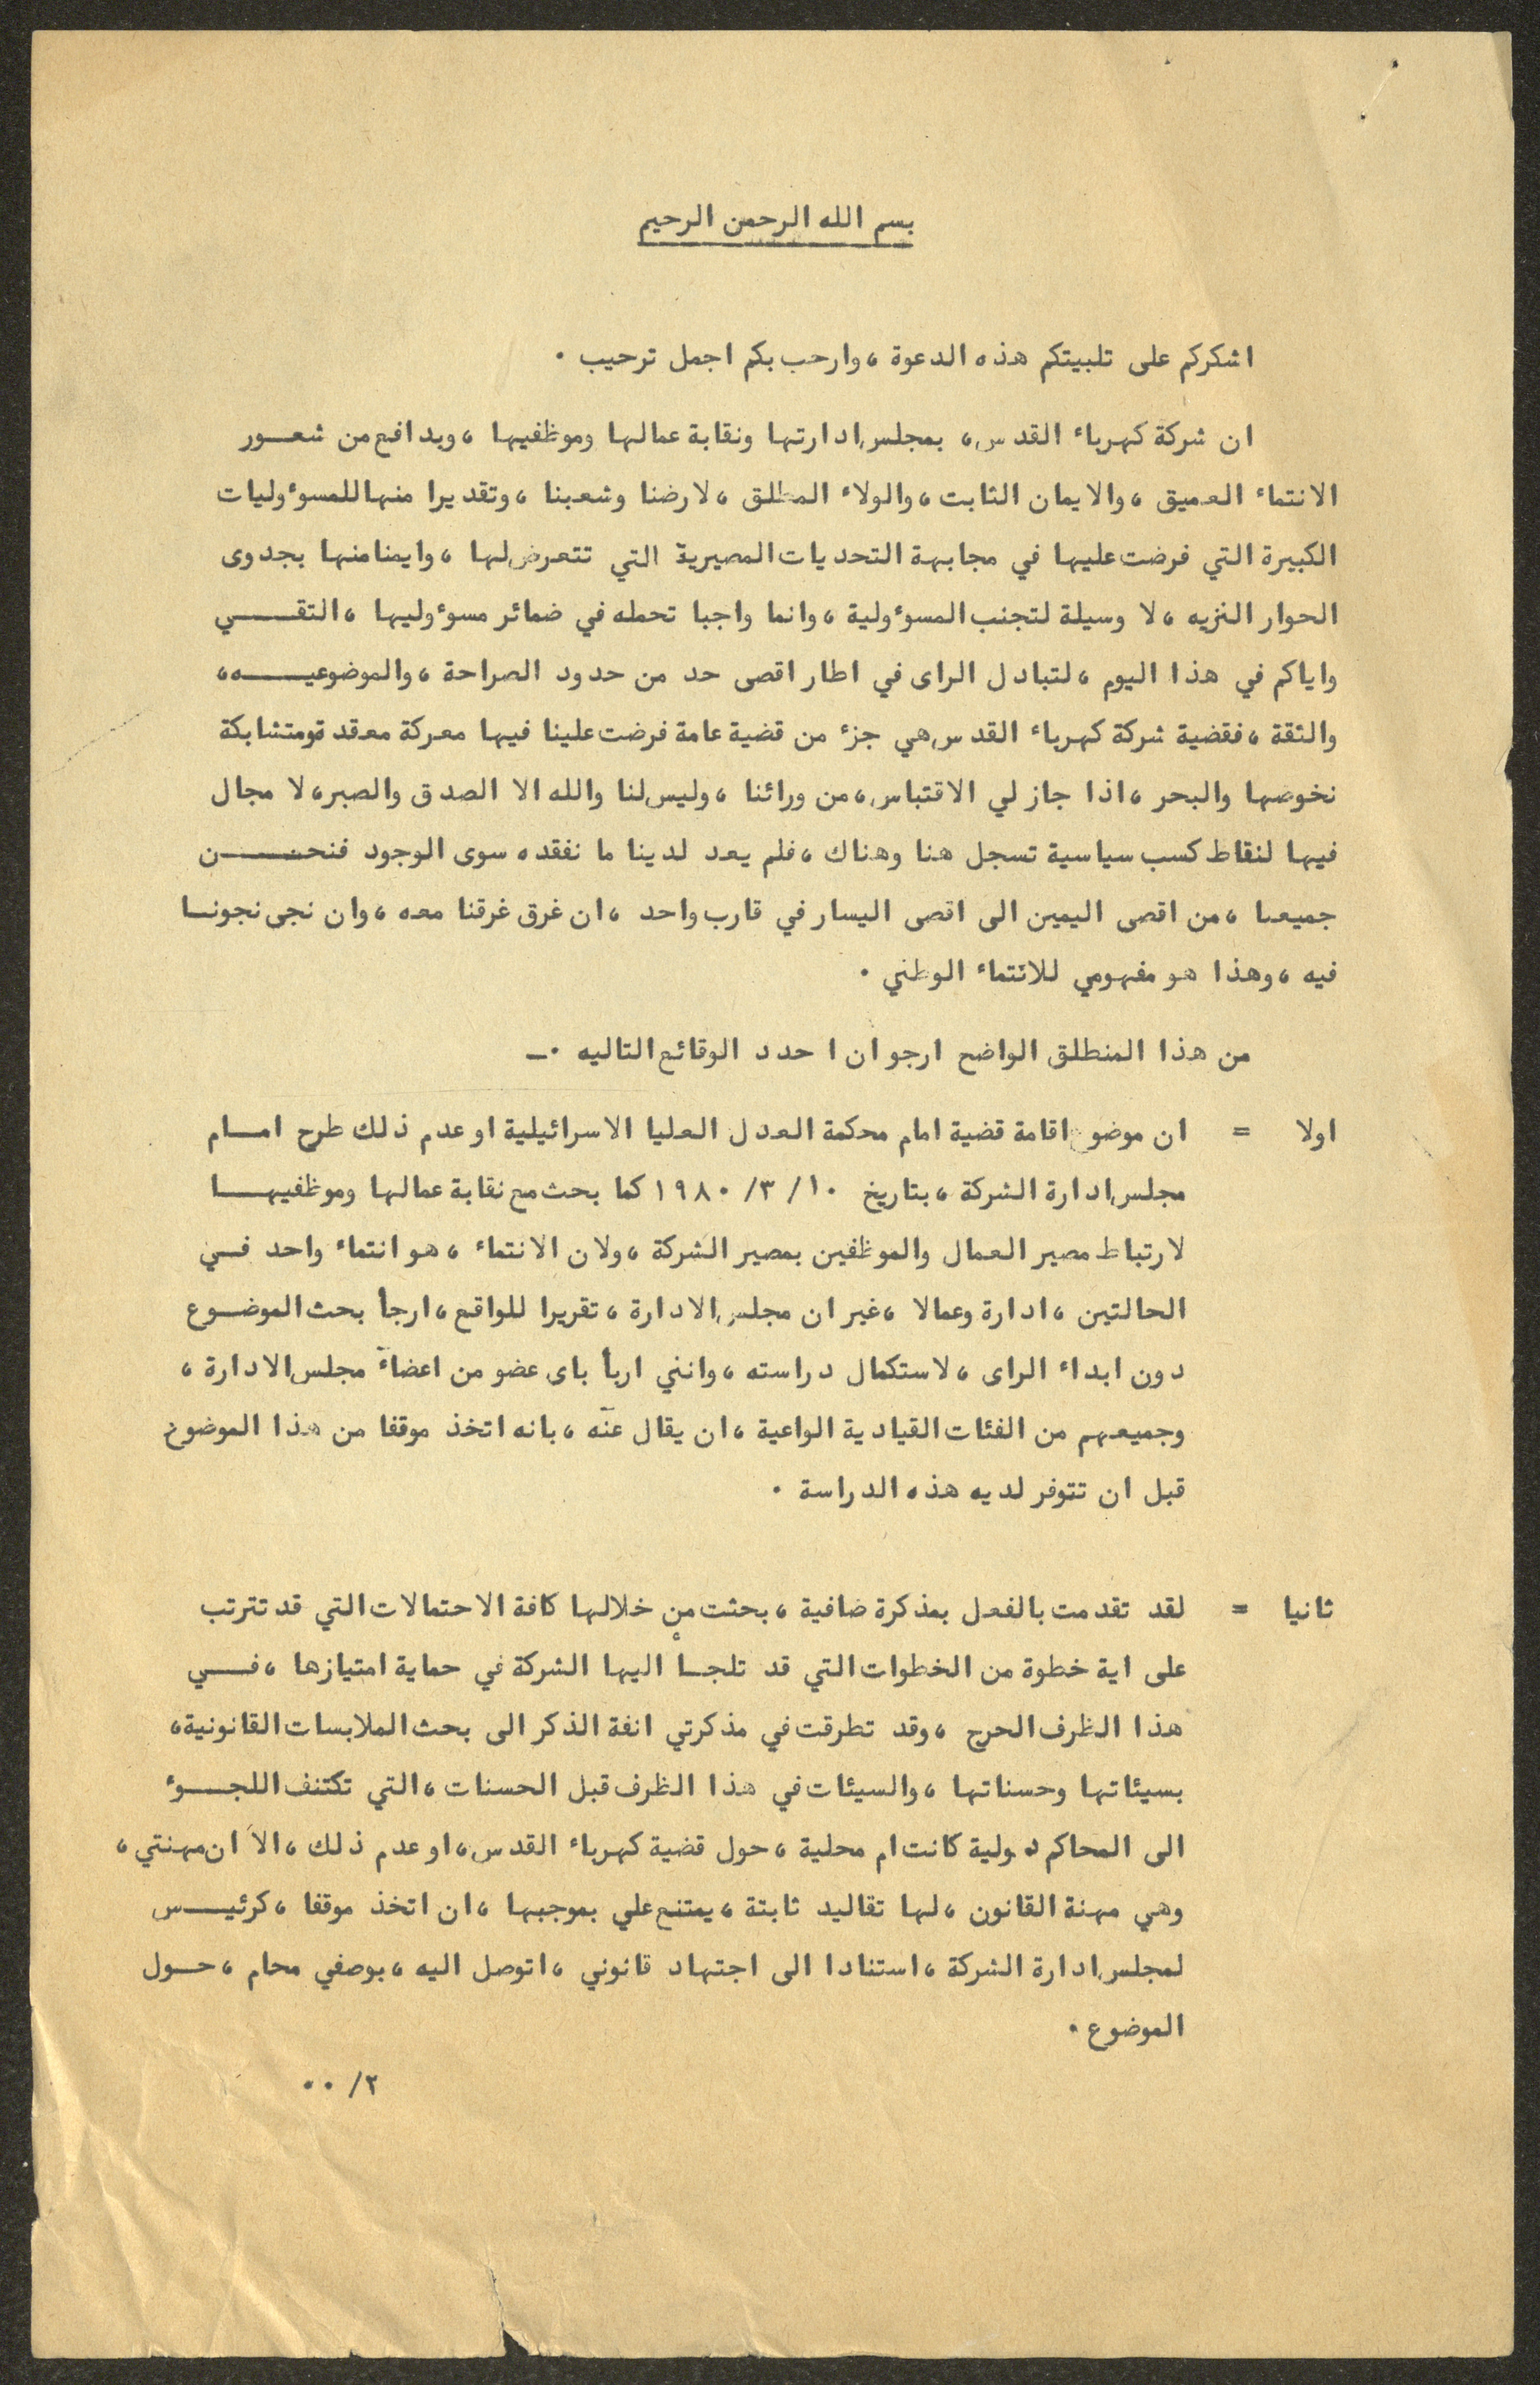 بسم الله الرحمن الرحيم
اشكركم على تلبيتكم هذه الدعوة ، وارحب بكم اجمل ترحيب .
ان شركة كهرباء القدس ، بمجلس ادارتها ونقابة عمالها وموظفيها ، وبدافع من شعــور
الانتماء العميق ، والايمان الثابت ، والولاء المطلق ، لارضنا وشعبنا ، وتقديرا منها للمسوءوليات
الكبيرة التي فرضت عليها في مجابهة التحديات المصيرية التي تتعرض لها ، وايمنا منها بجدوى
الحوار النزيه ، لا وسيلة لتجنب المسوءولية ، وانما واجبا تحمله في ضمائر مسوءوليها ، التقـــي
واياكم في هذا اليوم ، لتبادل الراى في اطار اقصى حد من حدود الصراحة ، والموضوعيـــه ،
والثقة ، فقضية شركة كهرباء القدس هي جزء من قضية عامة فرضت علينا فيها معركة معقدة ومتشابكة
نخوضها والبحر ، اذا جاز لي الاقتباس ، من ورائنا ، وليس لنا والله الا الصدق والصبر ، لا مجال
فيها لنقاط كسب سياسية تسجل هنا وهناك ، فلم يعد لدينا ما نفقده سوى الوجود فنحـــن
جميعا ، من اقصى اليمين الى اقصى اليسار في قارب واحد ، ان غرق غرقنا معه ، وان نجى نجونـا
فيه ، وهذا هو مفهومي للانتماء الوطني .
من هذا المنطلق الواضح ارجو ان احدد الوقائع التاليه .ــ
اولا = ان موضوع اقامة قضية امام محكمة العدل العليا الاسرائيلية او عدم ذلك طرح امــام
مجلس ادارة الشركة ، بتاريخ ١٠ /٣/ ١٩٨٠ كما بحث مع نقابة عمالها وموظفيهــا
لارتباط مصير العمال والموظفين بمصير الشركة ، ولان الانتماء ، هو انتماء واحد فــي
الحالتين ، ادارة وعمالا ، غير ان مجلس الادارة ، تقريرا للواقع ، ارجأ بحث الموضــوع
دون ابداء الراى ، لاستكمال دراسته ، وانني اربأ باى عضو من اعضاء مجلس الادارة ،
وجميعهم من الفئات القيادية الواعية ، ان يقال عنه ، بانه اتخذ موقفا من هذا الموضوع
قبل ان تتوفر لديه هذه الدراسة .
ثانيا = لقد تقدمت بالفعل بمذكرة ضافية ، بحثت من خلالها كافة الاحتمالات التي قد تترتب
على اية خطوة من الخطوات التي قد تلجــأ اليها الشركة في حماية امتيازها ، فـــي
هذا الظرف الحرج ، وقد تطرقت في مذكرتي انفة الذكر الى بحث الملابسات القانونية ،
بسيئاتها وحسناتها ، والسيئات في هذا الظرف قبل الحسنات ، التي تكتنف اللجــوء
الى المحاكم دولية كانت ام محلية ، حول قضية كهرباء القدس ، او عدم ذلك ، الا ان مهنتي ،
وهي مهنة القانون ، لها تقاليد ثابتة ، يمتنع علي بموجبها ، ان اتخذ موقفا ، كرئيــس
لمجلس ادارة الشركة ، استنادا الى اجتهاد قانوني ، اتوصل اليه ، بوصفي محام ، حــول
الموضوع .
٢/ ..